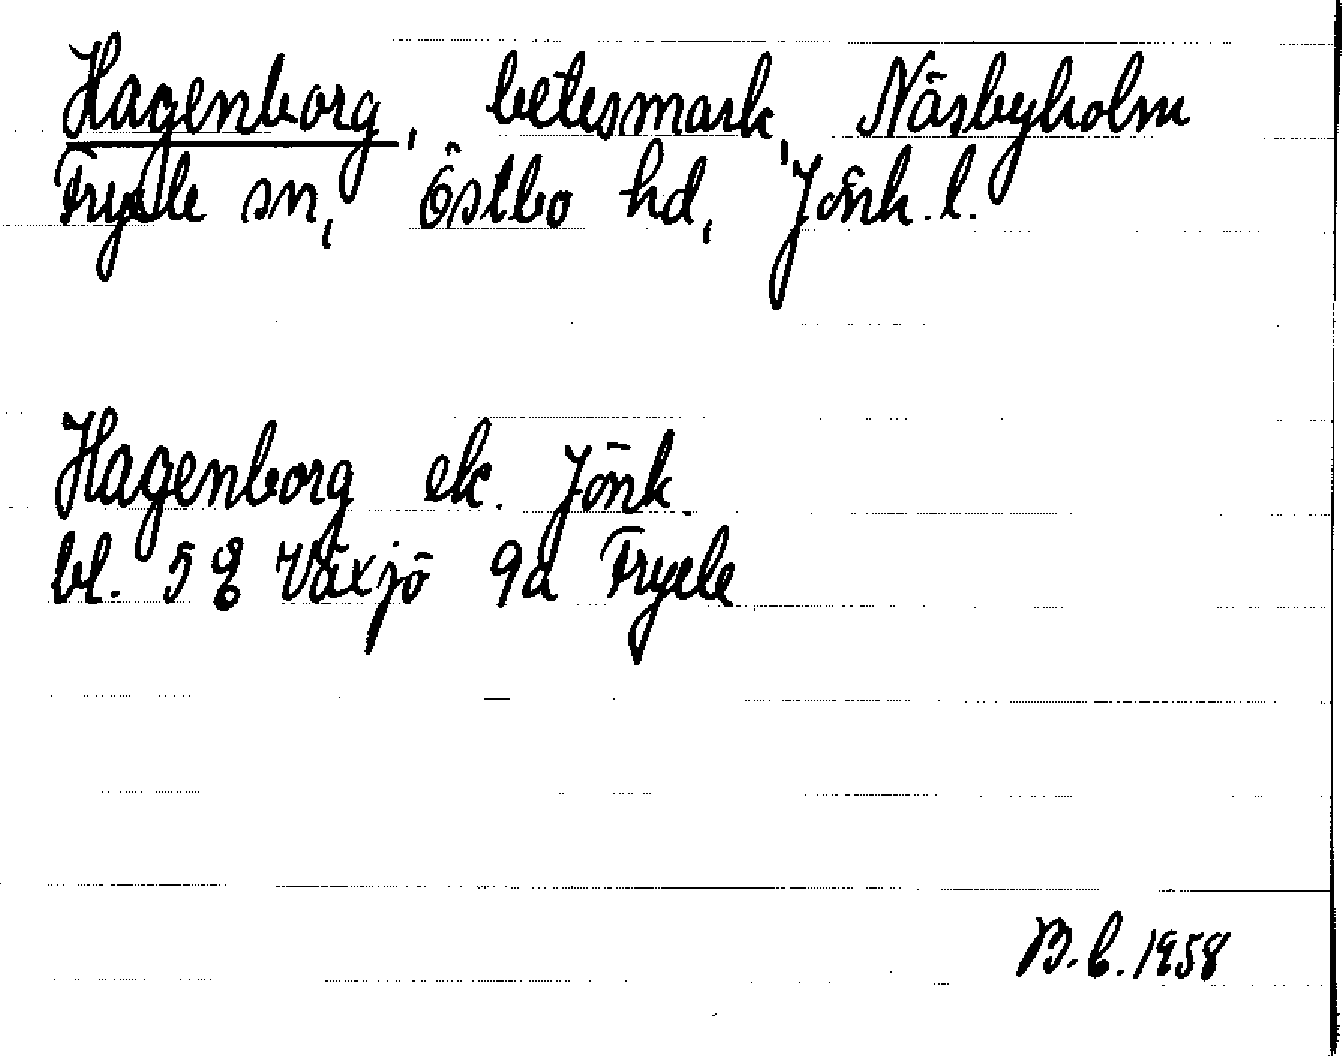 Hagenborg, betesmark, Näsbyholm
Fryele sn, Östbo hd, Jönk. l.
Hagenborg ek. Jönk.
bl. 5 g Växjö 9a Fryele
B. C. 1958